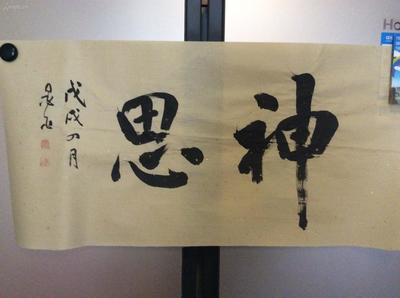 神思
戊戌四月
Ho